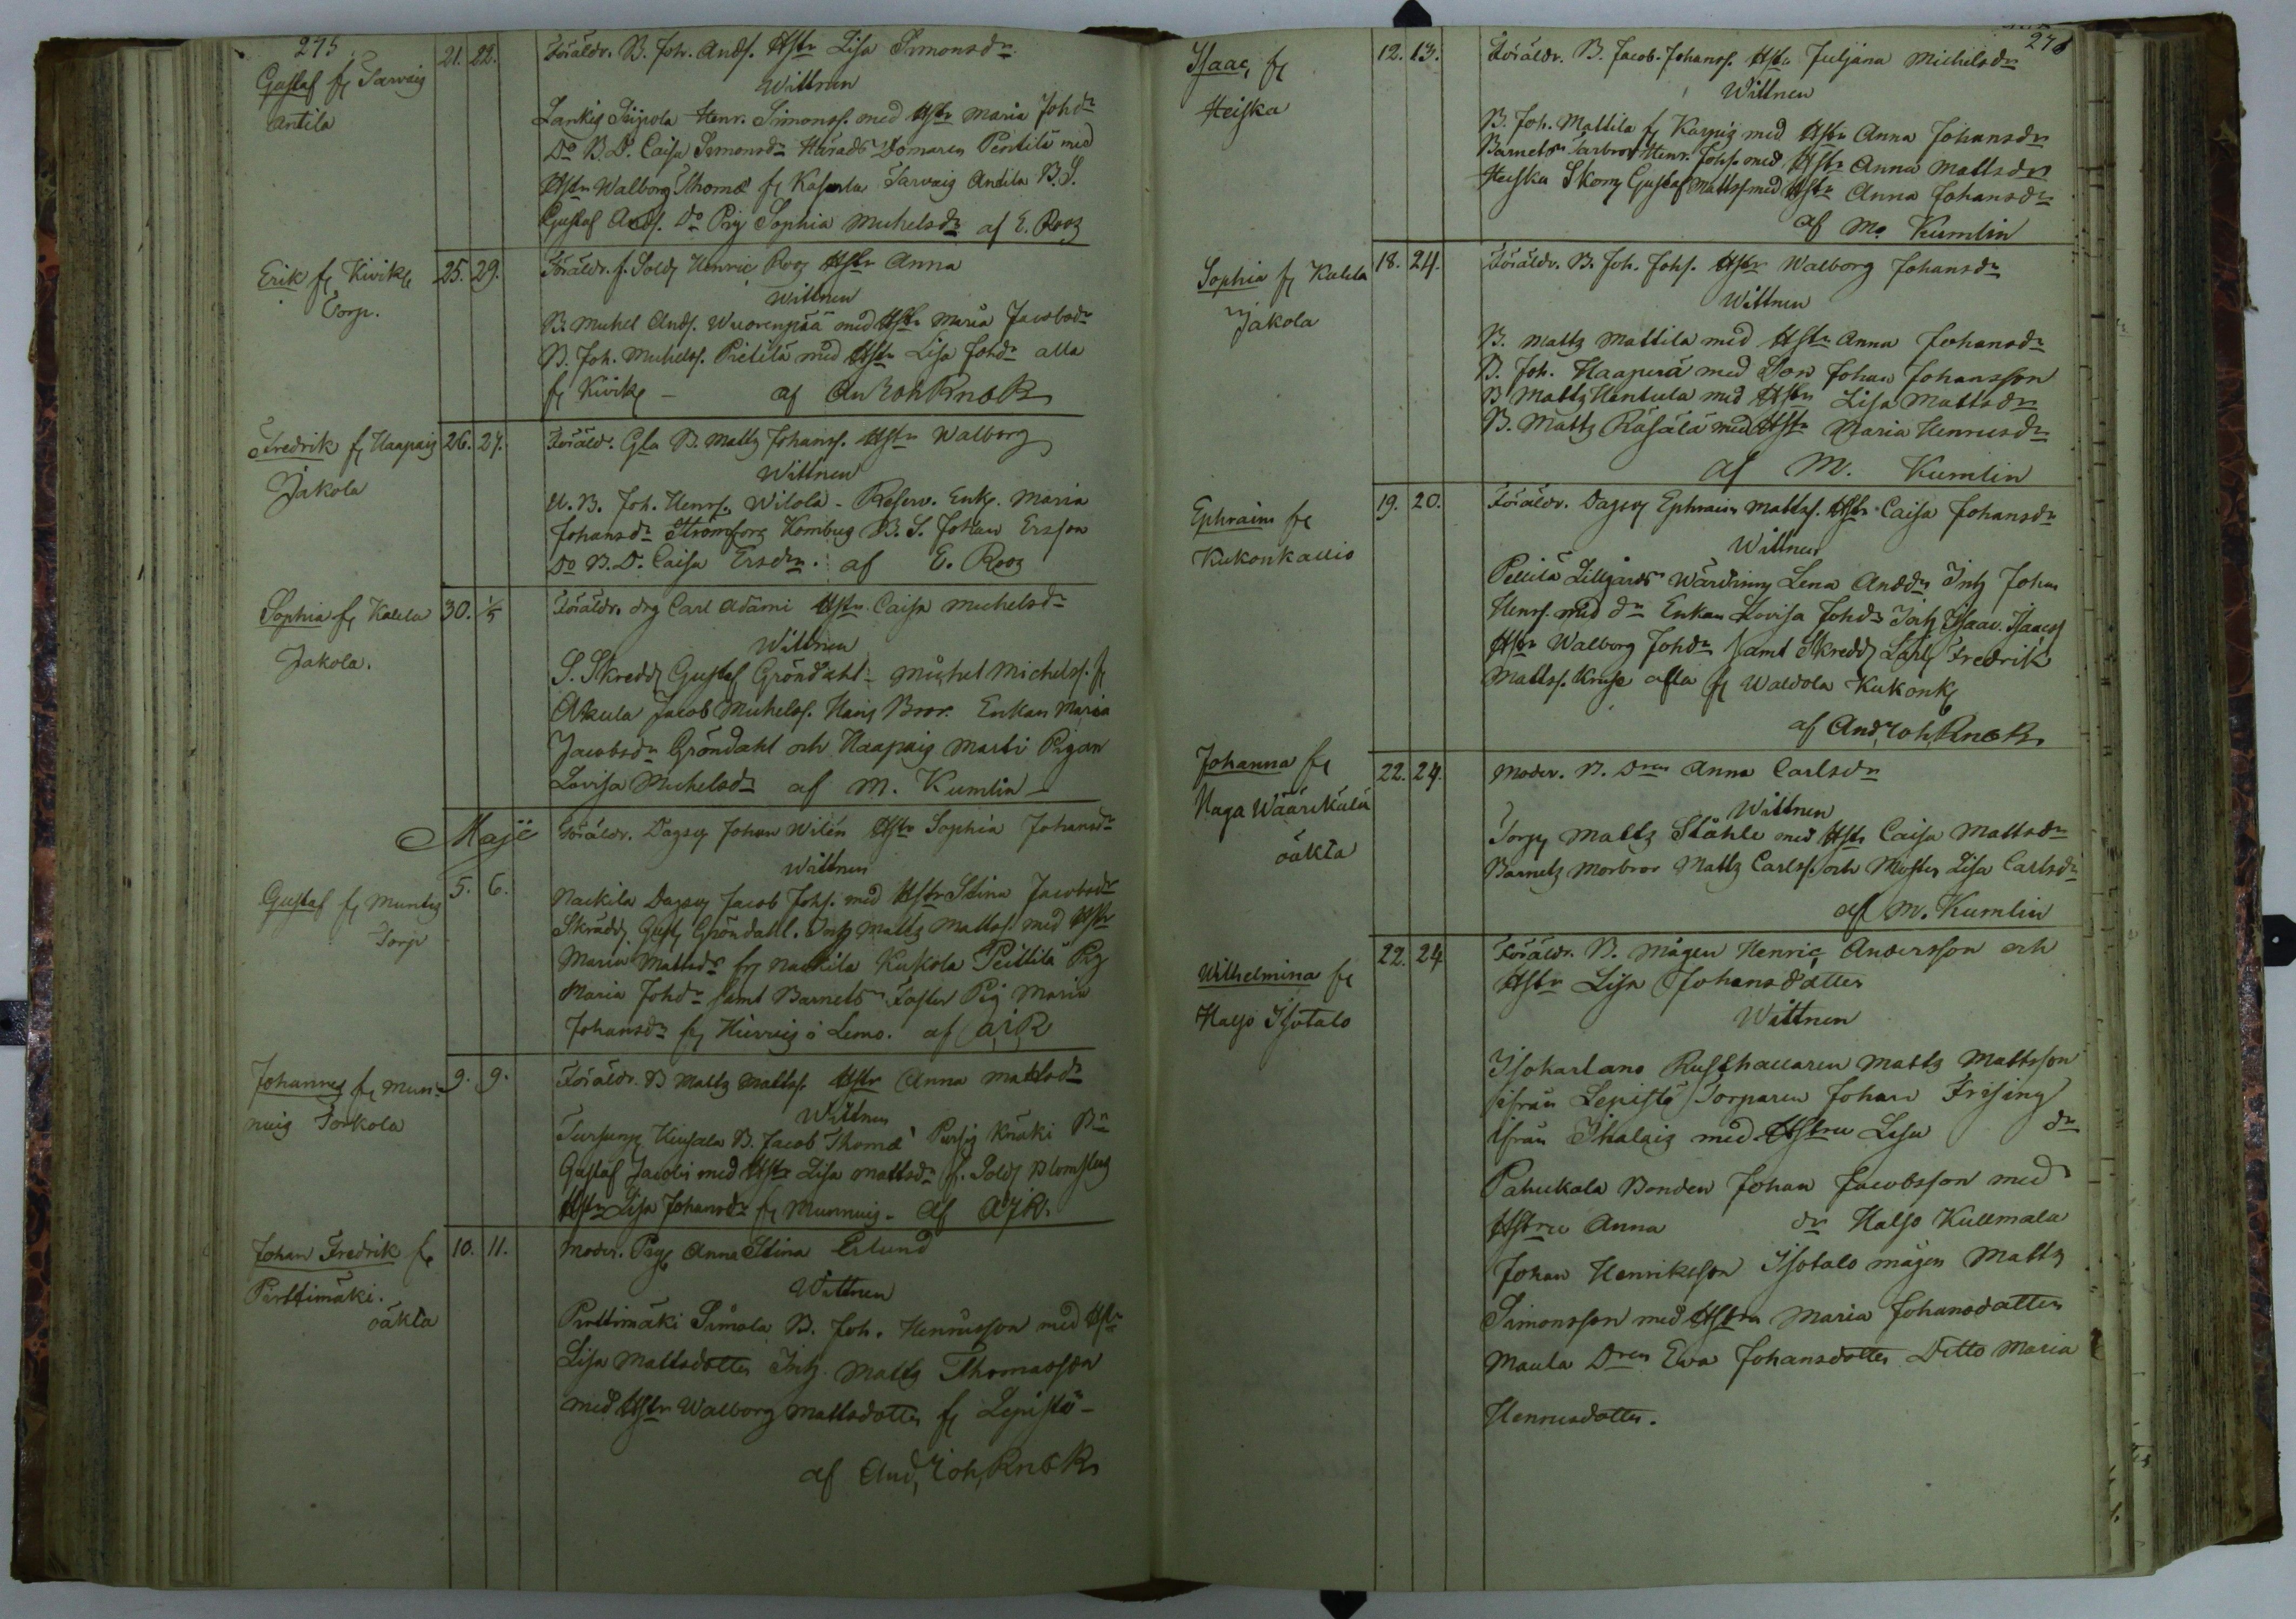 275
Gustaf fr Tarvaig
Antila
21. 22.
Föräldr. B. Joh. Ands. Hstr Lisa Simonsdr
Wittnen
Lankig Seipola Henr. Simonss. med Hstr Maria Johdr
Do B.D. Caisa Simonsdr Härads Domaren Pentilä med
Hstr Walborg Thomæ fr Kaserla Tarvaig Antila B.S.
Gustaf Ands. Do Pig Sophia Michelsdr af E. Roos
Erik fr Kivik
Torp.
25. 29.
Föräldr. f. Sold Henric Roos Hstr Anna
Wittnen
B. Michel Ands. Wuorenpää med Hstr Maria Jacobsdr
B. Joh. Michelss. Pietilä med Hstr Lisa Johdr alla
fr Kivik – af
Fredrik fr Haapaig
Jakola
26. 27.
Föräld. Gla B. Matts Johanss. Hstr Walborg
Wittnen
U.B. Joh. Henrss. Witola - Reserv. Enk. Maria
Johansdr Strömforg B.S. Johan Ersson
Do B.D. Caisa Ersdr. af E. Roos
Sophia fr Kalela
Jakola.
30. 1/5
Föräldr. drg Carl Adami Hstr Caisa Michelsdr
Wittnen
S. Skredd Gustaf Gröndahl – Michel Michelss. fr
Akula Jacob Michelss. Hans Bror. Enkan Maria
Jacobsdr Gröndahl och Haapaig Marti Pigan
Lovisa Michelsdr af M. Kumlin –
Maji
Föräldr. Dagsv Johan Wilén Hstr Sophia Johansdr
Wittnen
Gustaf fr Muntig
Torp
5. 6.
Naekila Dagsv Jacob Johs. med Hstr Stina Jacobsdr
Skrädd. Gust Gröndahl. Inh Matts Matts. med Hstr
Maria Mattsdr fr Naekila Kuskola Peittilä Pig
Maria Johdr samt Barnets Faster Pig Maria
Johansdr fr Hirvig i Lemo. af AJR
Johannes fr Mun-
nuig Torkola
9. 9.
Föräldr. B Matts Mattss. Hstr Anna Mattsdr
Wittnen
Hinsala B. Jacob Thomæ Knaki Bn
Gustaf Jacobi med Hstr Lisa Mattsdr f. Sold Blomster
Hstr Lisa Johansdr fr Munnuig - af AJR.
Johan Fredrik fr
Pirttimäki.
oäkta
10. 11.
Moder. Pig Anna Stina Erlund
Wittnen
Pirttimäki Simola B. Joh. Henricsson med Hstr
Lisa Mattsdotter Inh. Matts Thomasson
med Hstr Walborg Mattsdotter fr Lepistö –
af And, Joh,
276
Isaac fr
Heiska
12. 13.
Föräldr. B. Jacob Johanss. Hstr Juljana Michelsdr
Wittnen
B. Joh. Mattila fr Karpig med Hstr Anna Johansdr
Barnets farbror Henr. Johs. med Hstr Anna Mattsdr
Heiska Skom Gustaf Mattss med Hstr Anna Johansdr
af M. Kumlin
Sophia fr Kalela
Jakola
18. 24.
Föräldr. B. Joh. Johs. Hstr Walborg Johansdr
Wittnen
B. Matts Mattila med Hstr Anna Johansdr
B. Joh. Haaperä med Son Johan Johansson
B Matts Hentula med Hstr Lisa Mattsdr
B. Matts Räsälä med Hstr Maria Henricsdr
af M. Kumlin
Ephraim fr
Kukonkallio
19. 20.
Föräldr. Dagsv Ephraim Mattss. Hstr Caisa Johansdr
Wittnen
Peltilä Lillgårds Wärdinn Lena Andedr Inh Johan
Henrs. med dr Enkan Lovisa Johdr Inh Isaac. Isaacss
Hstr Walborg Johdr samt Skredd Lärl Fredrik
Mattss. Kruse alla fr Waldola Kukonk
af And, Joh,
Johanna fr
Haga Wäärikälä
oäkta
22. 24.
Moder. B. Dren Anna Carlsdr
Wittnen
Torp Matts Ståhle med Hstr Caisa Mattsdr
Barnets Morbror Matts Carlss. och Moster Lisa Carlsdr
af M. Kumlin
Wilhelmina fr
Haljo Isotalo
22. 24
Föräldr. B. Mågen Henric Andersson och
Hstr Lisa Johansdotter
Wittnen
Isokarlano Rusthållaren Matts Mattsson
ifrån Lepistö Torparen Johan Frising
ifrån Ihalaig med Hstru Lisa dr
Pahukala Bonden Johan Jacobsson med
Hstru Anna dr Haljo Kullmala
Johan Henriksson Isotalo mågen Matts
Simonsson med Hstru Maria Johansdotter
Maula Dren Ewa Johansdotter Ditto Maria
Henricsdotter.